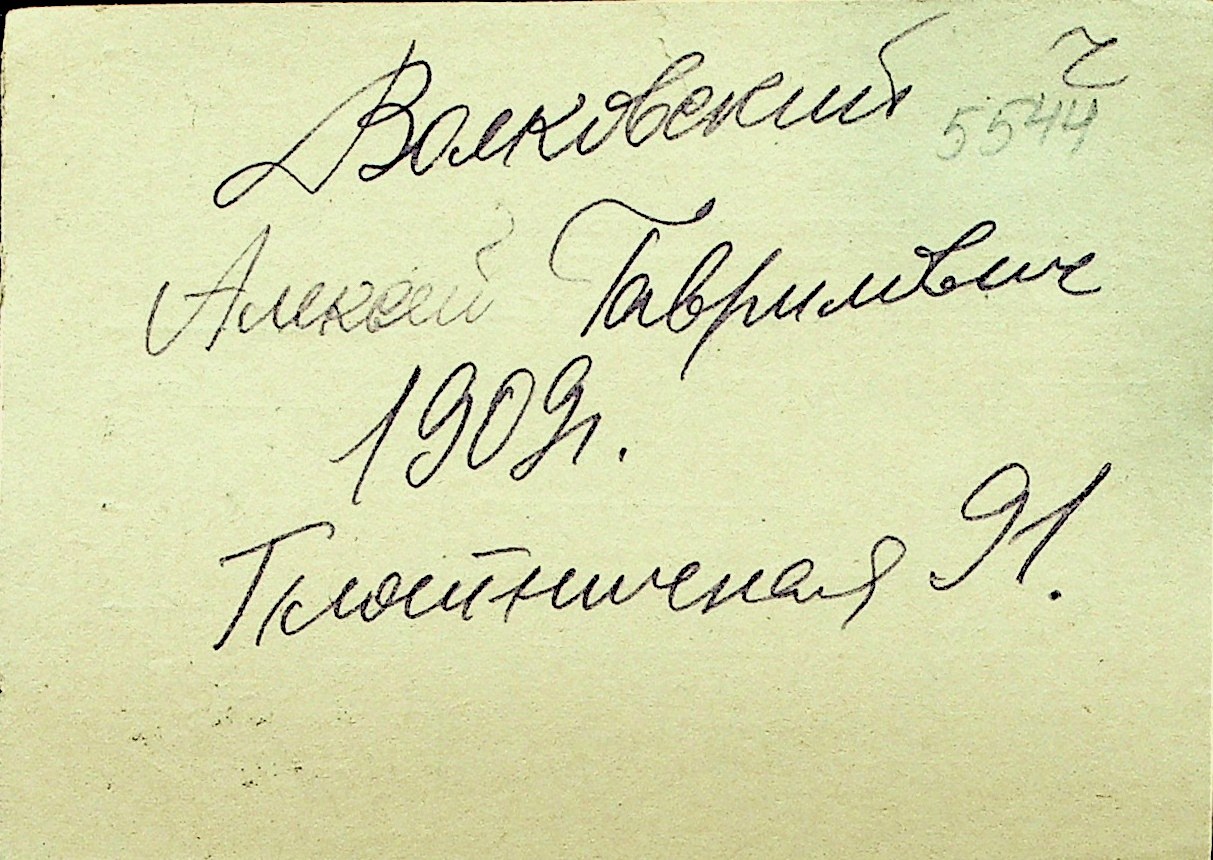 Волковский ч
5544
Алексей Гаврилович
1909г.
Плотническая 91.